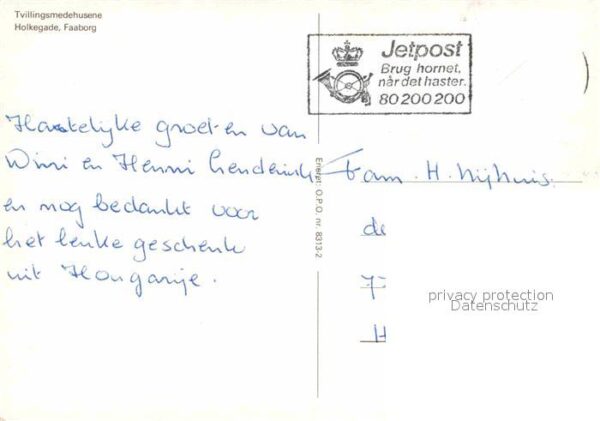 Tvillingsmedehusene
Holkegade, Faaborg
Jetpost
Brug hornet,
når det haster.
80 200 200
Hartelijke groeten van
Wini en Henni
en nog bedankt voor
het leuke geschenk
uit Hongarije.
Eneret: O.P.O. nr. 8313-2
fam. H. Nijhuis.
de
7
H
privacy protection
Datenschutz